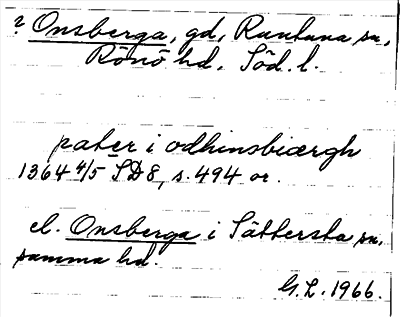 ? Onsberga, gd, Runtuna sn,
Rönö hd. Söd. l.
pater i odhinsbiærgh
1364 4/5 SD 8, s. 494 or.
el. Onsberga i Sättersta sn,
samma hd.
G.L. 1966.